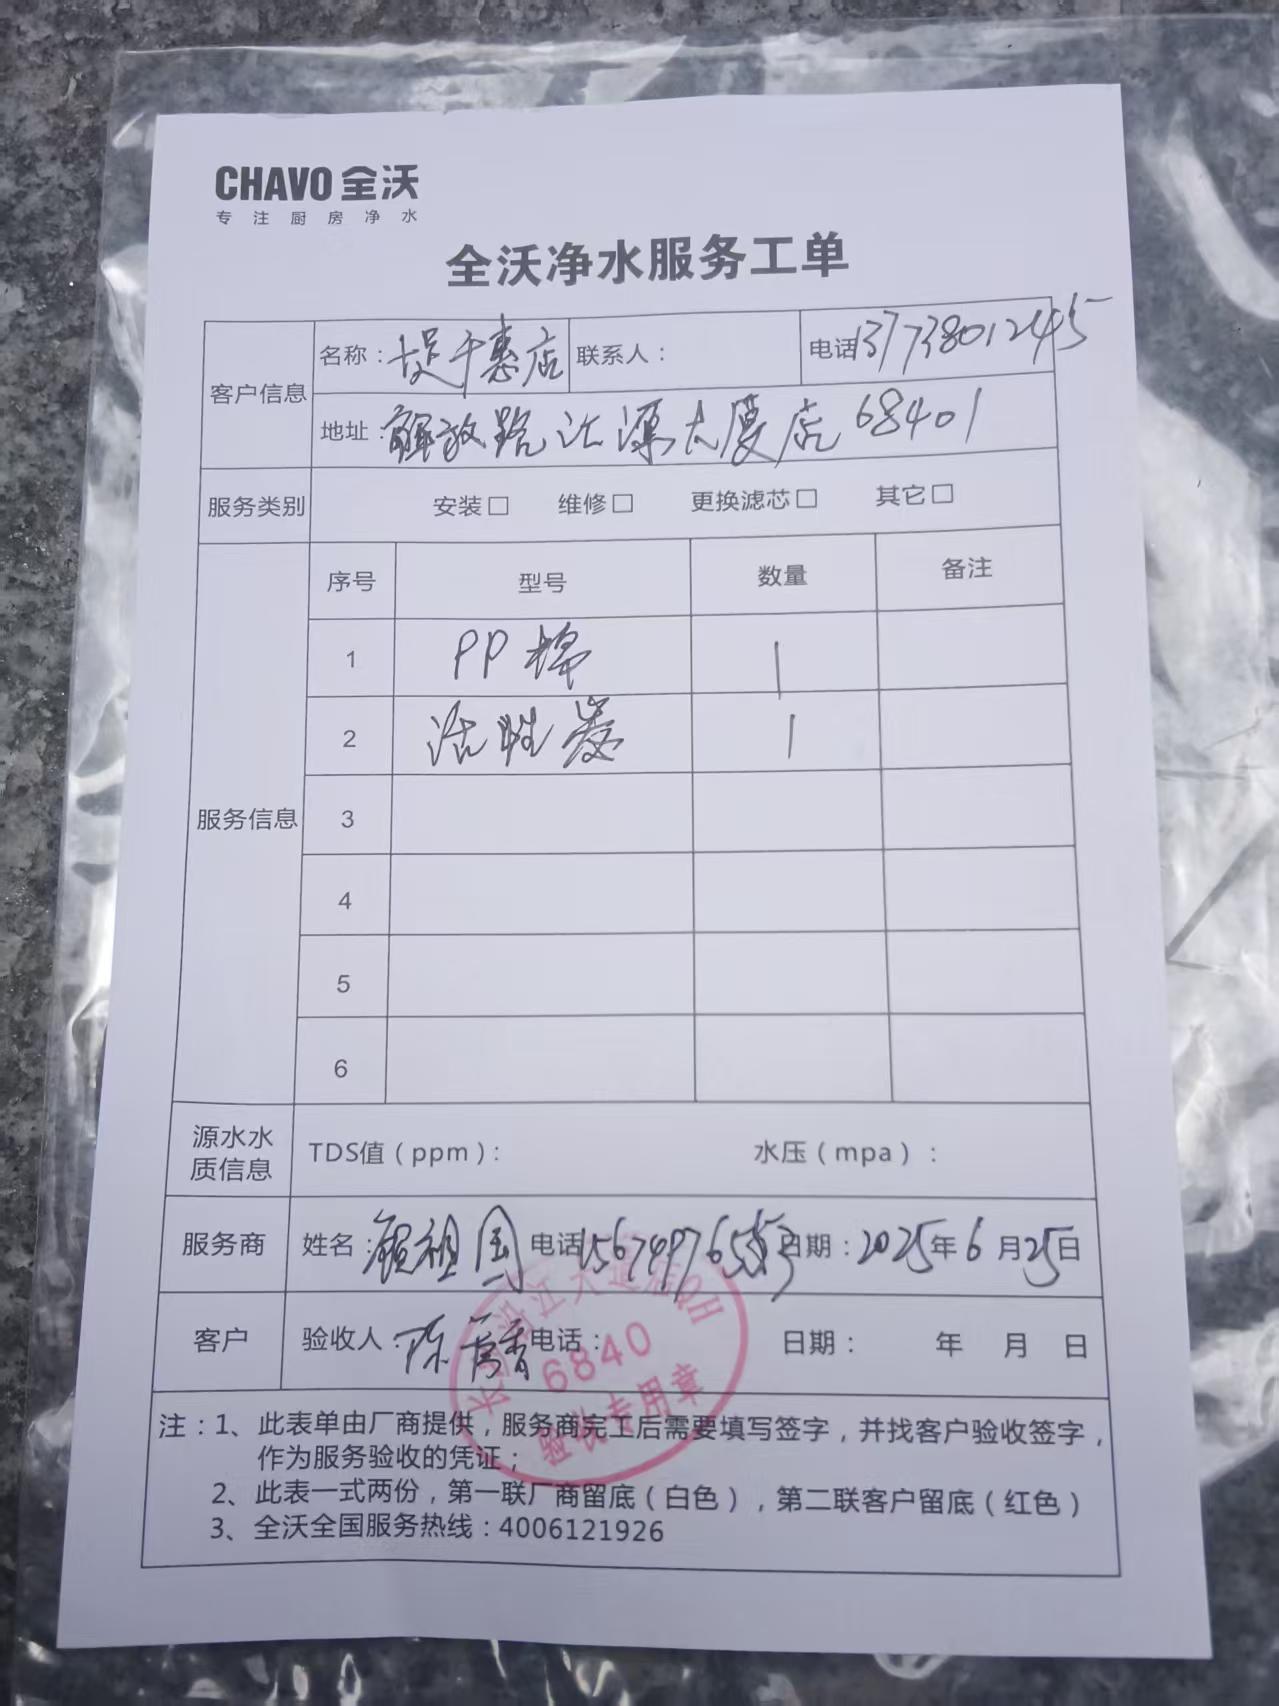 CHAVO 全沃
专注厨房净水
全沃净水服务工单
客户信息 名称：堤千惠店 联系人： 电话 1373801245
地址：解放路汇源大厦店68401
服务类别 安装□ 维修□ 更换滤芯□ 其它□
服务信息 序号 型号 数量 备注
1 PP棉 1
2 活性炭 1
3
4
5
6
源水水质信息 TDS值（ppm）： 水压（mpa）：
服务商 姓名：祖国 电话 日期：2025年6月25日
客户 验收人：陈 电话： 日期： 年 月 日
沿江大道店QH
6840
验收专用章
注：1、此表单由厂商提供，服务商完工后需要填写签字，并找客户验收签字，
作为服务验收的凭证；
2、此表一式两份，第一联厂商留底（白色），第二联客户留底（红色）
3、全沃全国服务热线：4006121926